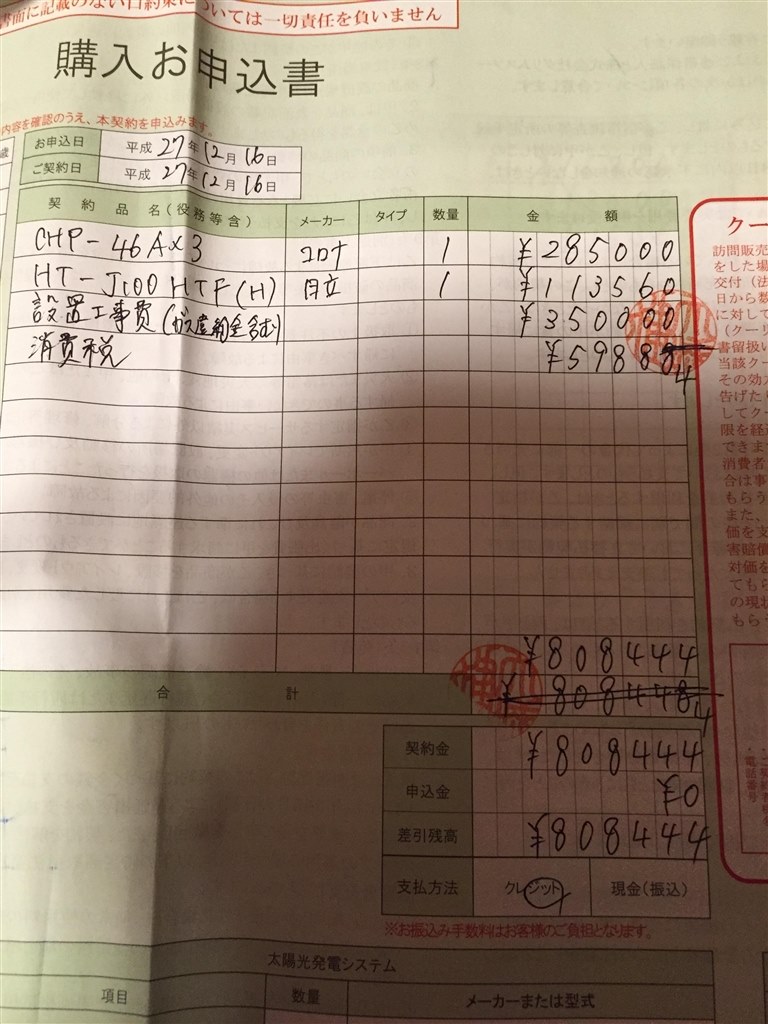 書面に記載のない口約束については一切責任を負いません
購入お申込書
内容を確認のうえ、本契約を申込みます。
お申込日 平成 27年 12月 16日
ご契約日 平成 27年 12月 16日
契約品名(役務等含) メーカー タイプ 数量 金額
CHP-46A×3 コロナ 1 ¥285000
HT-J100HTF(H) 日立 1 ¥113560
設置工事費 ¥350000
消費税 ¥59884
¥808444
合計 ¥808448
契約金 ¥808444
申込金 ¥0
差引残高 ¥808444
支払方法 クレジット 現金(振込)
※お振込み手数料はお客様のご負担となります。
太陽光発電システム
項目 数量 メーカーまたは型式
クー
訪問販売
をした場
交付(法
日から数
に対して
(クーリ
書留扱い
当該クー
その効力
告げたり
してクー
限を経過
できませ
消費者
合は事
もらう
また、
価を支
害賠償
対価を
てもら
の現状
もらう
電話番号